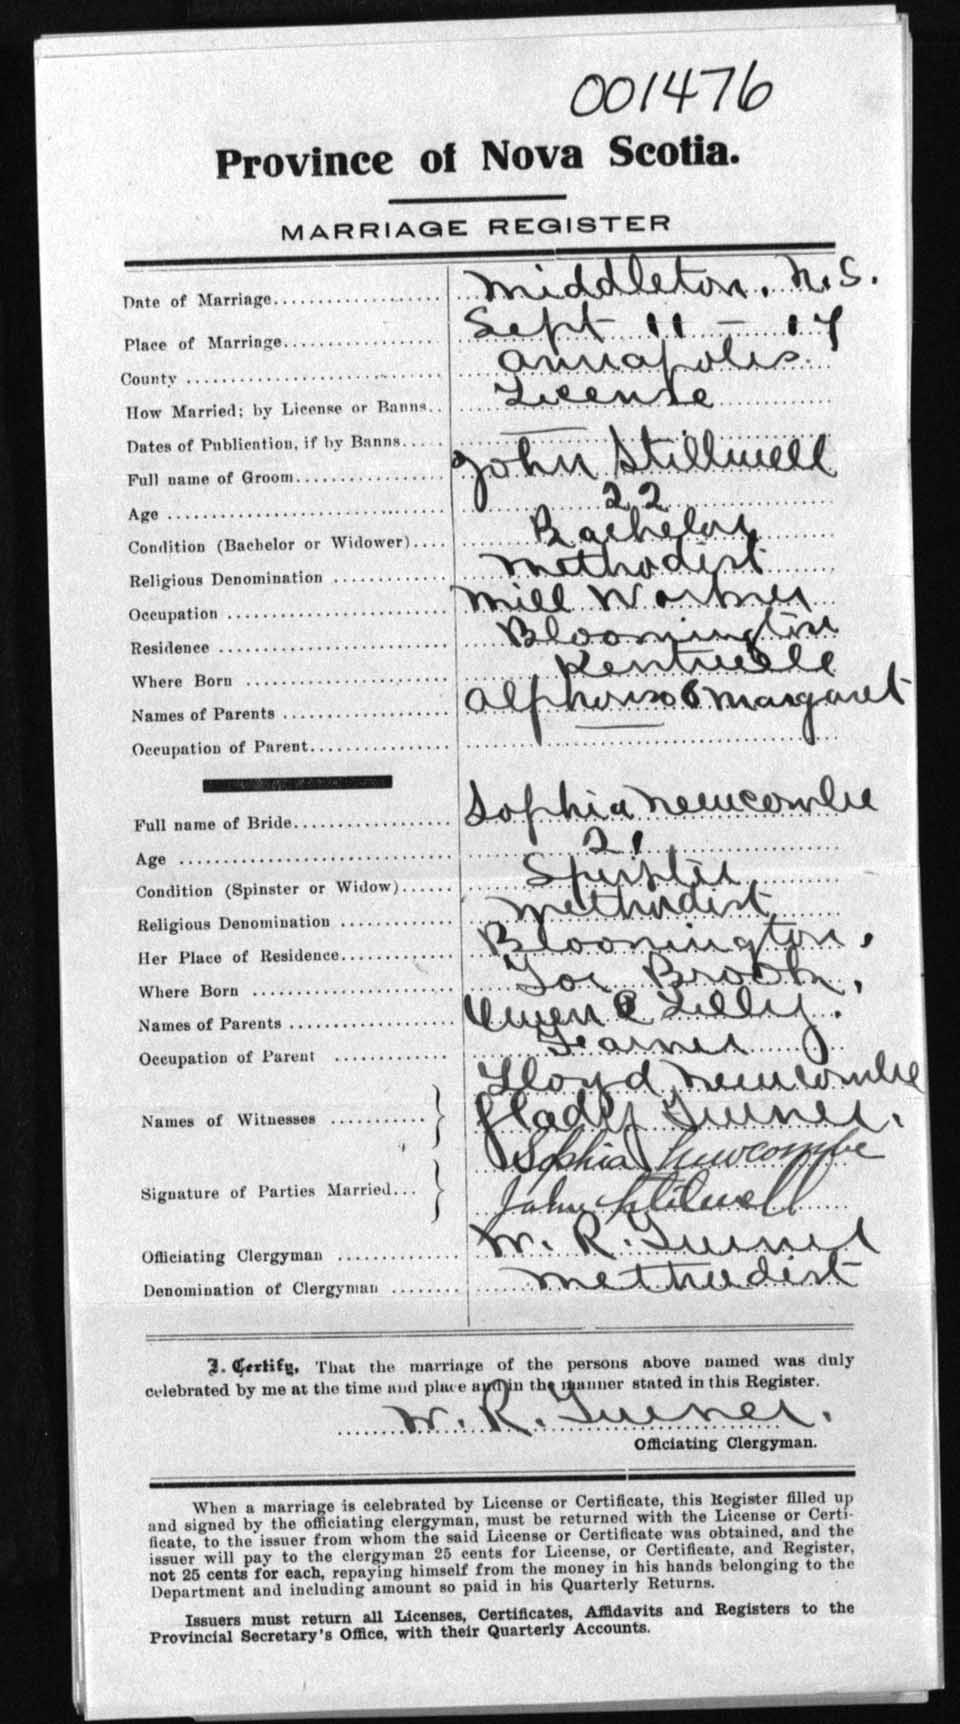 001476
Province of Nova Scotia.
MARRIAGE REGISTER
Date of Marriage Middleton. N.S.
Place of Marriage Sept 11 - 17
County Annapolis.
How Married; by License or Banns License
Dates of Publication, if by Banns
Full name of Groom John Stillwell
Age 22
Condition (Bachelor or Widower) Bachelor
Religious Denomination Methodist
Occupation Mill Worker
Residence Bloomington
Where Born
Names of Parents Alphonso & Margaret
Occupation of Parent
Full name of Bride Sophia Newcombe
Age 21
Condition (Spinster or Widow) Spinster
Religious Denomination Methodist
Her Place of Residence Bloomington,
Where Born Tor Brook,
Names of Parents Owen & Lilly.
Occupation of Parent Farmer
Lloyd Newcombe
Names of Witnesses Gladys Turner.
Sophia Newcombe
Signature of Parties Married John Stilwell
Officiating Clergyman W. R. Turner
Denomination of Clergyman Methodist
I Certify, That the marriage of the persons above named was duly
celebrated by me at the time and place and in the manner stated in this Register.
W. R. Turner.
Officiating Clergyman.
When a marriage is celebrated by License or Certificate, this Register filled up
and signed by the officiating clergyman, must be returned with the License or Certi-
ficate, to the issuer from whom the said License or Certificate was obtained, and the
issuer will pay to the clergyman 25 cents for License, or Certificate, and Register,
not 25 cents for each, repaying himself from the money in his hands belonging to the
Department and including amount so paid in his Quarterly Returns.
Issuers must return all Licenses, Certificates, Affidavits and Registers to the
Provincial Secretary's Office, with their Quarterly Accounts.